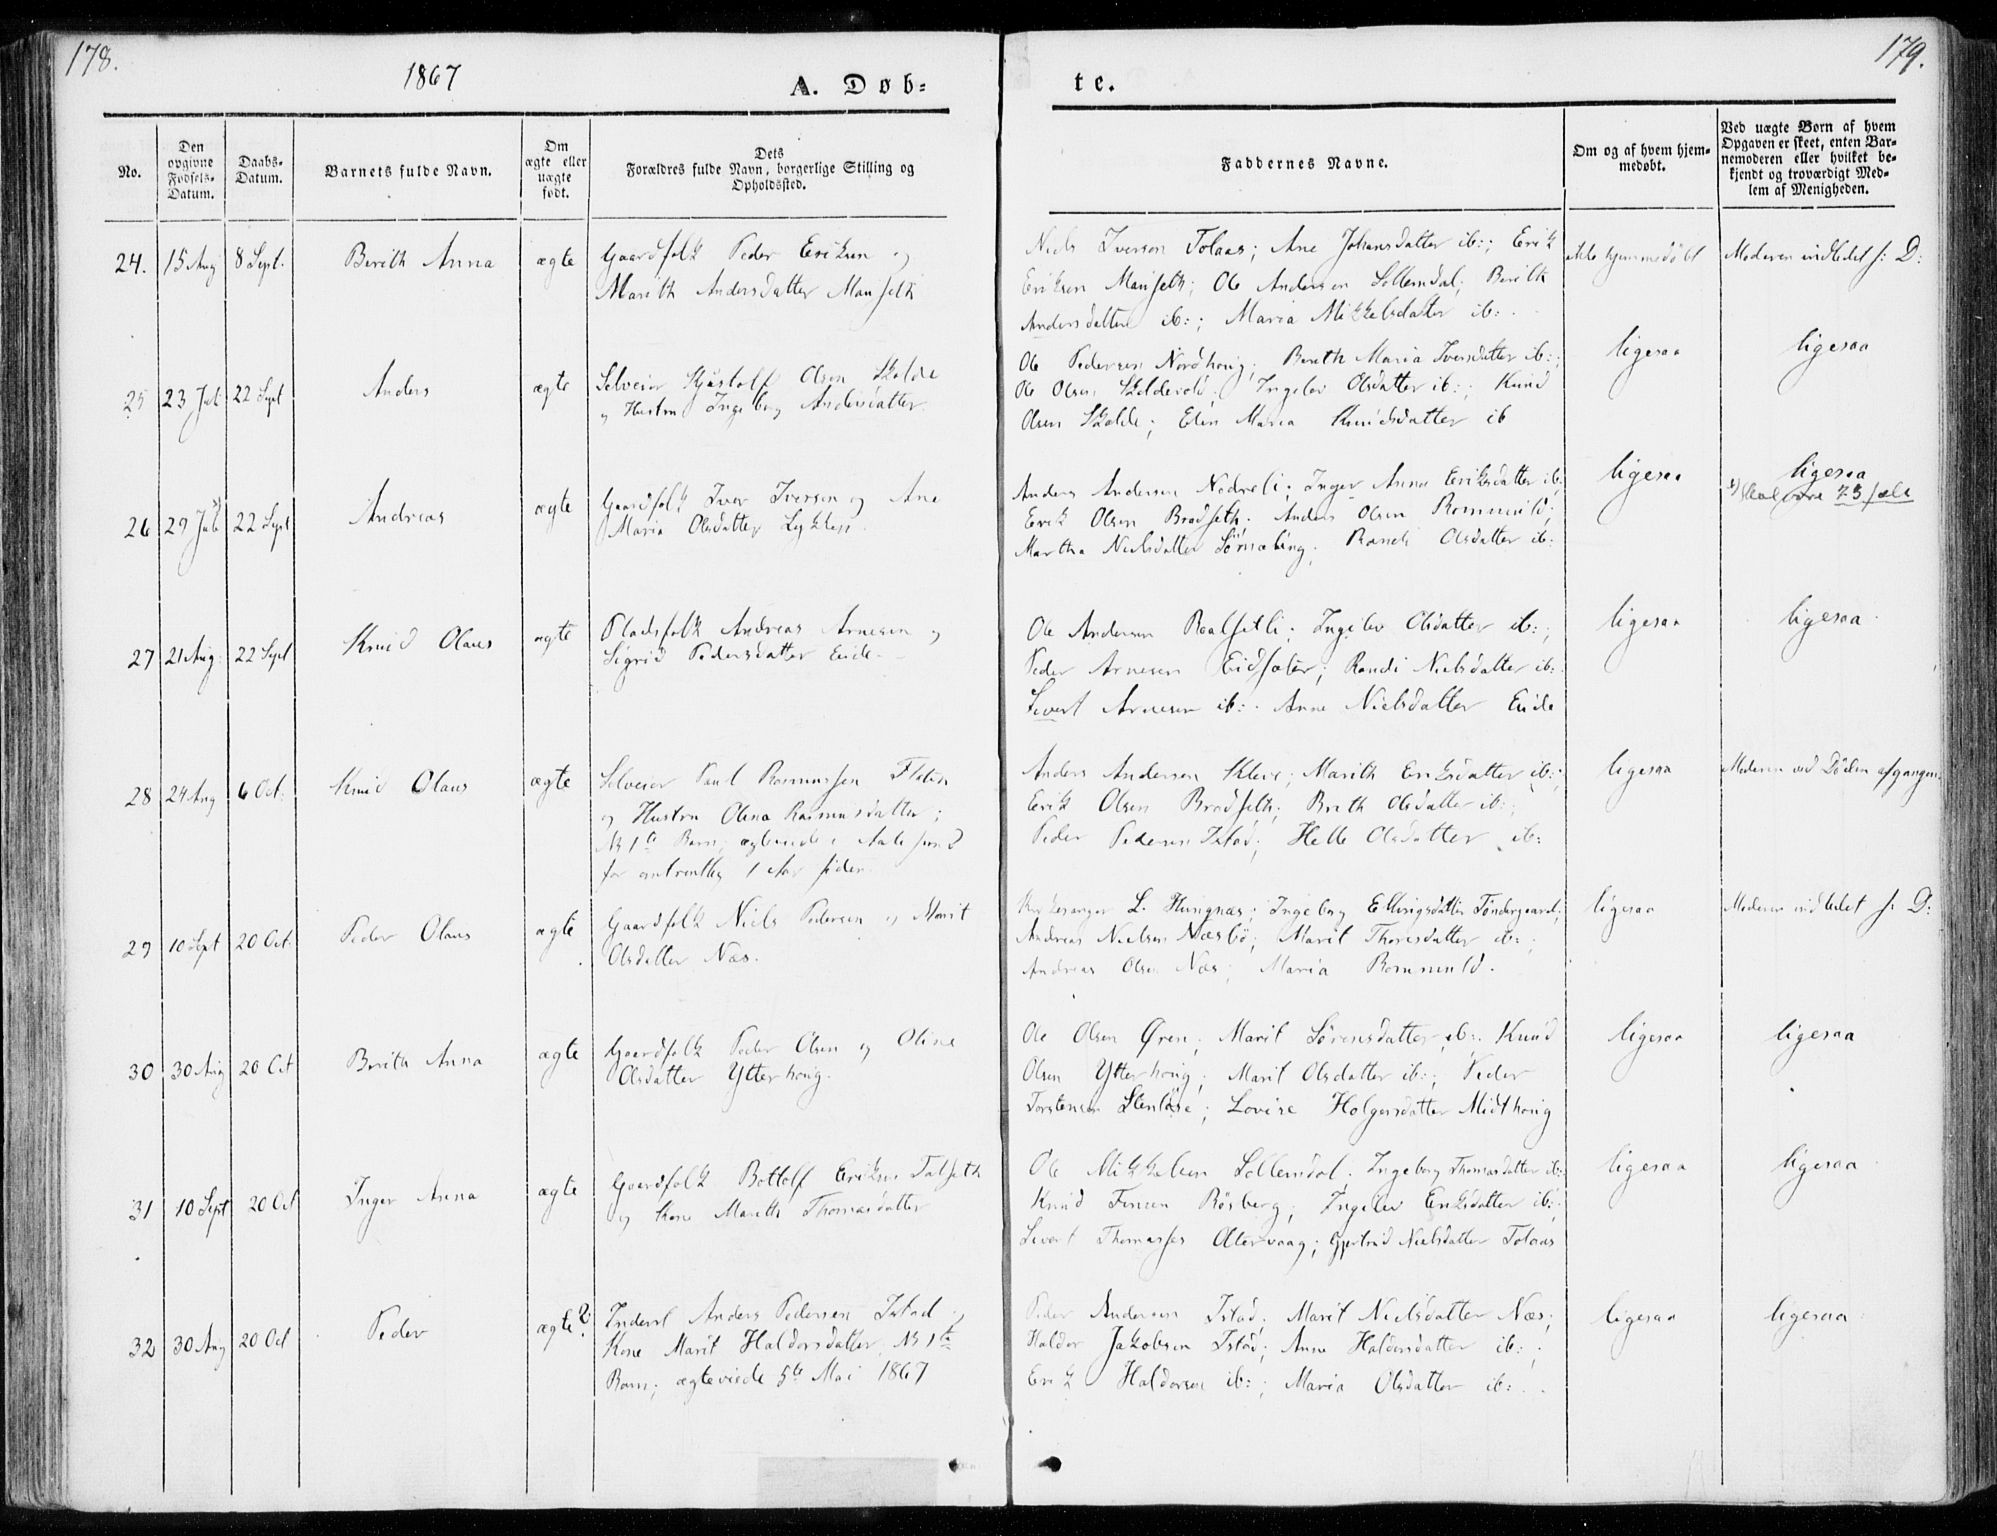 178.
1867
A. Døb-
te.
179.
No.
Den
opgivne
Fødsels-
Datum.
Daabs-
Datum.
Barnets fulde Navn.
Om
ægte eller
uægte
født.
Dets
Forældres fulde Navn, borgerlige Stilling og
Opholdssted.
Faddernes Navne.
Om og af hvem hjem-
medøbt.
Ved uægte Børn af hvem
Opgaven er skeet, enten Bar-
nemoderen eller hvilket be-
kjendt og troværdigt Med-
lem af Menigheden.
24. 15 Aug 8 Sept. Berith Anna ægte Gaardfolk Peder Eriksen og
Marith Andersdatter Manseth
Niels Iversen Tolaas; Ane Johansdatter ib:; Erik
Eriksen Manseth; Ole Andersen Sollemdal; Berith
Andersdatter ib:; Maria Mikkelsdatter ib:
ikke hjemmedøbt
Moderen indledet s: D:
25 23 Juli 22 Sept Anders ægte Selveier Olsen Skolde
og Hustru Ingeborg Andersdatter
Ole Pedersen Nordhoug; Bereth Maria Iversdatter ib:;
Ole Olsen Ingelev Olsdatter ib:; Knud
Olsen Skolde; Elen Maria Knudsdatter ib
ligesaa
ligesaa
26 29 Juli *) 22 Sept Andreas ægte Gaardfolk Iver Iversen og Ane
Maria Olsdatter
Anders Andersen Nedreli; Inger Anna Eriksdatter ib;
Erik Olsen Bradseth; Anders Olsen Romuuld;
Martha Nielsdatter Randi Olsdatter ib:
ligesaa
ligesaa
*) skal være 23 Juli
27 21 Aug: 22 Sept Knud Olaus ægte Pladsfolk Andreas Arnesen og
Sigrid Pedersdatter Eide
Ole Andersen Ingelev Olsdatter ib:;
Peder Arnesen Eidsæter; Randi Nielsdatter ib:
Sivert Arnesen ib: Anne Nielsdatter Eide
ligesaa
ligesaa
28 24 Aug 6 Oct: Knud Olaus ægte Selveier Paul Rasmussen
og Hustru Olena Rasmusdatter;
No 1ste Barn, i
for omtrentlig 1 Aar siden
Anders Andersen Kleive; Marith Eriksdatter ib:;
Erik Olsen Bradseth; Brith Olsdatter ib:;
Peder Pedersen Istad; Helle Olsdatter ib:
ligesaa
Moderen ved Døden afgangen
29 10 Sept 20 Oct: Peder Olaus ægte Gaardfolk Niels Pedersen og Marit
Olsdatter Næs.
Kirkesanger L. Hungnæs; Ingeborg Ellingsdatter Tøndergaard;
Andreas Nielsen Næsbø; Marit Thoresdatter ib:;
Andreas Olsen Næs; Maria Romuuld.
ligesaa
Moderen indledet s: D:
30 30 Aug 20 Oct Berith Anna ægte Gaardfolk Peder Olsen og Oline
Olsdatter Ytterhoug.
Ole Olsen Øren; Marit Sørensdatter ib:. Knud
Olsen Ytterhoug; Marit Olsdatter ib:; Peder
Torstensen Stenløse; Lovise Holgersdatter Midthoug
ligesaa
ligesaa
31 10 Sept 20 Oct Inger Anna ægte Gaardfolk Bottolf Eriksen Talseth
og Kone Marith Thomasdatter
Ole Mikkelsen Sollemdal; Ingeborg Thomasdatter ib:
Knud Finsen Røsberg; Ingelev Eriksdatter ib:;
Sivert Thomassen Gjertrud Nielsdatter Tolaas
ligesaa
ligesaa
32 30 Aug 20 Oct Peder ægte?. Inderst Anders Pedersen Istad og
Kone Marit Haldorsdatter; No 1ste
Barn; ægteviede 5te Mai 1867
Peder Andersen Istad; Marit Nielsdatter Næs;
Haldor Jakobsen Istad; Anne Haldorsdatter ib:;
Erik Haldorsen ib:; Maria Olsdatter ib:
ligesaa
ligesaa